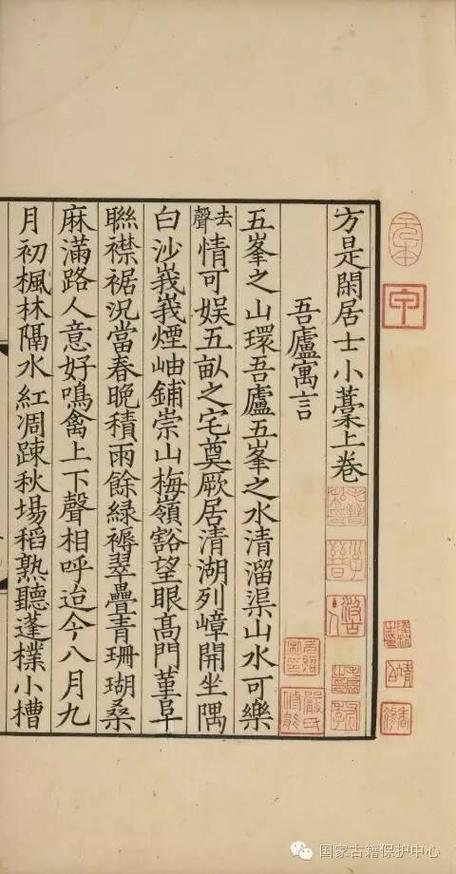 方是閑居士小藁上卷
吾廬寓言
五峯之山環吾廬五峯之水清溜渠山水可樂
去聲情可娱五畝之宅奠厥居清湖列嶂開坐隅
白沙峩峩煙岫鋪崇山梅嶺豁望眼髙門葷阜
聯襟裾況當春晚積雨餘綠褥翠疊青珊瑚桑
麻滿路人意好鳴禽上下聲相呼迨今八月九
月初楓林隔水紅凋踈秋場稻熟聽蓬檏小槽
元本
甲
國家古籍保护中心